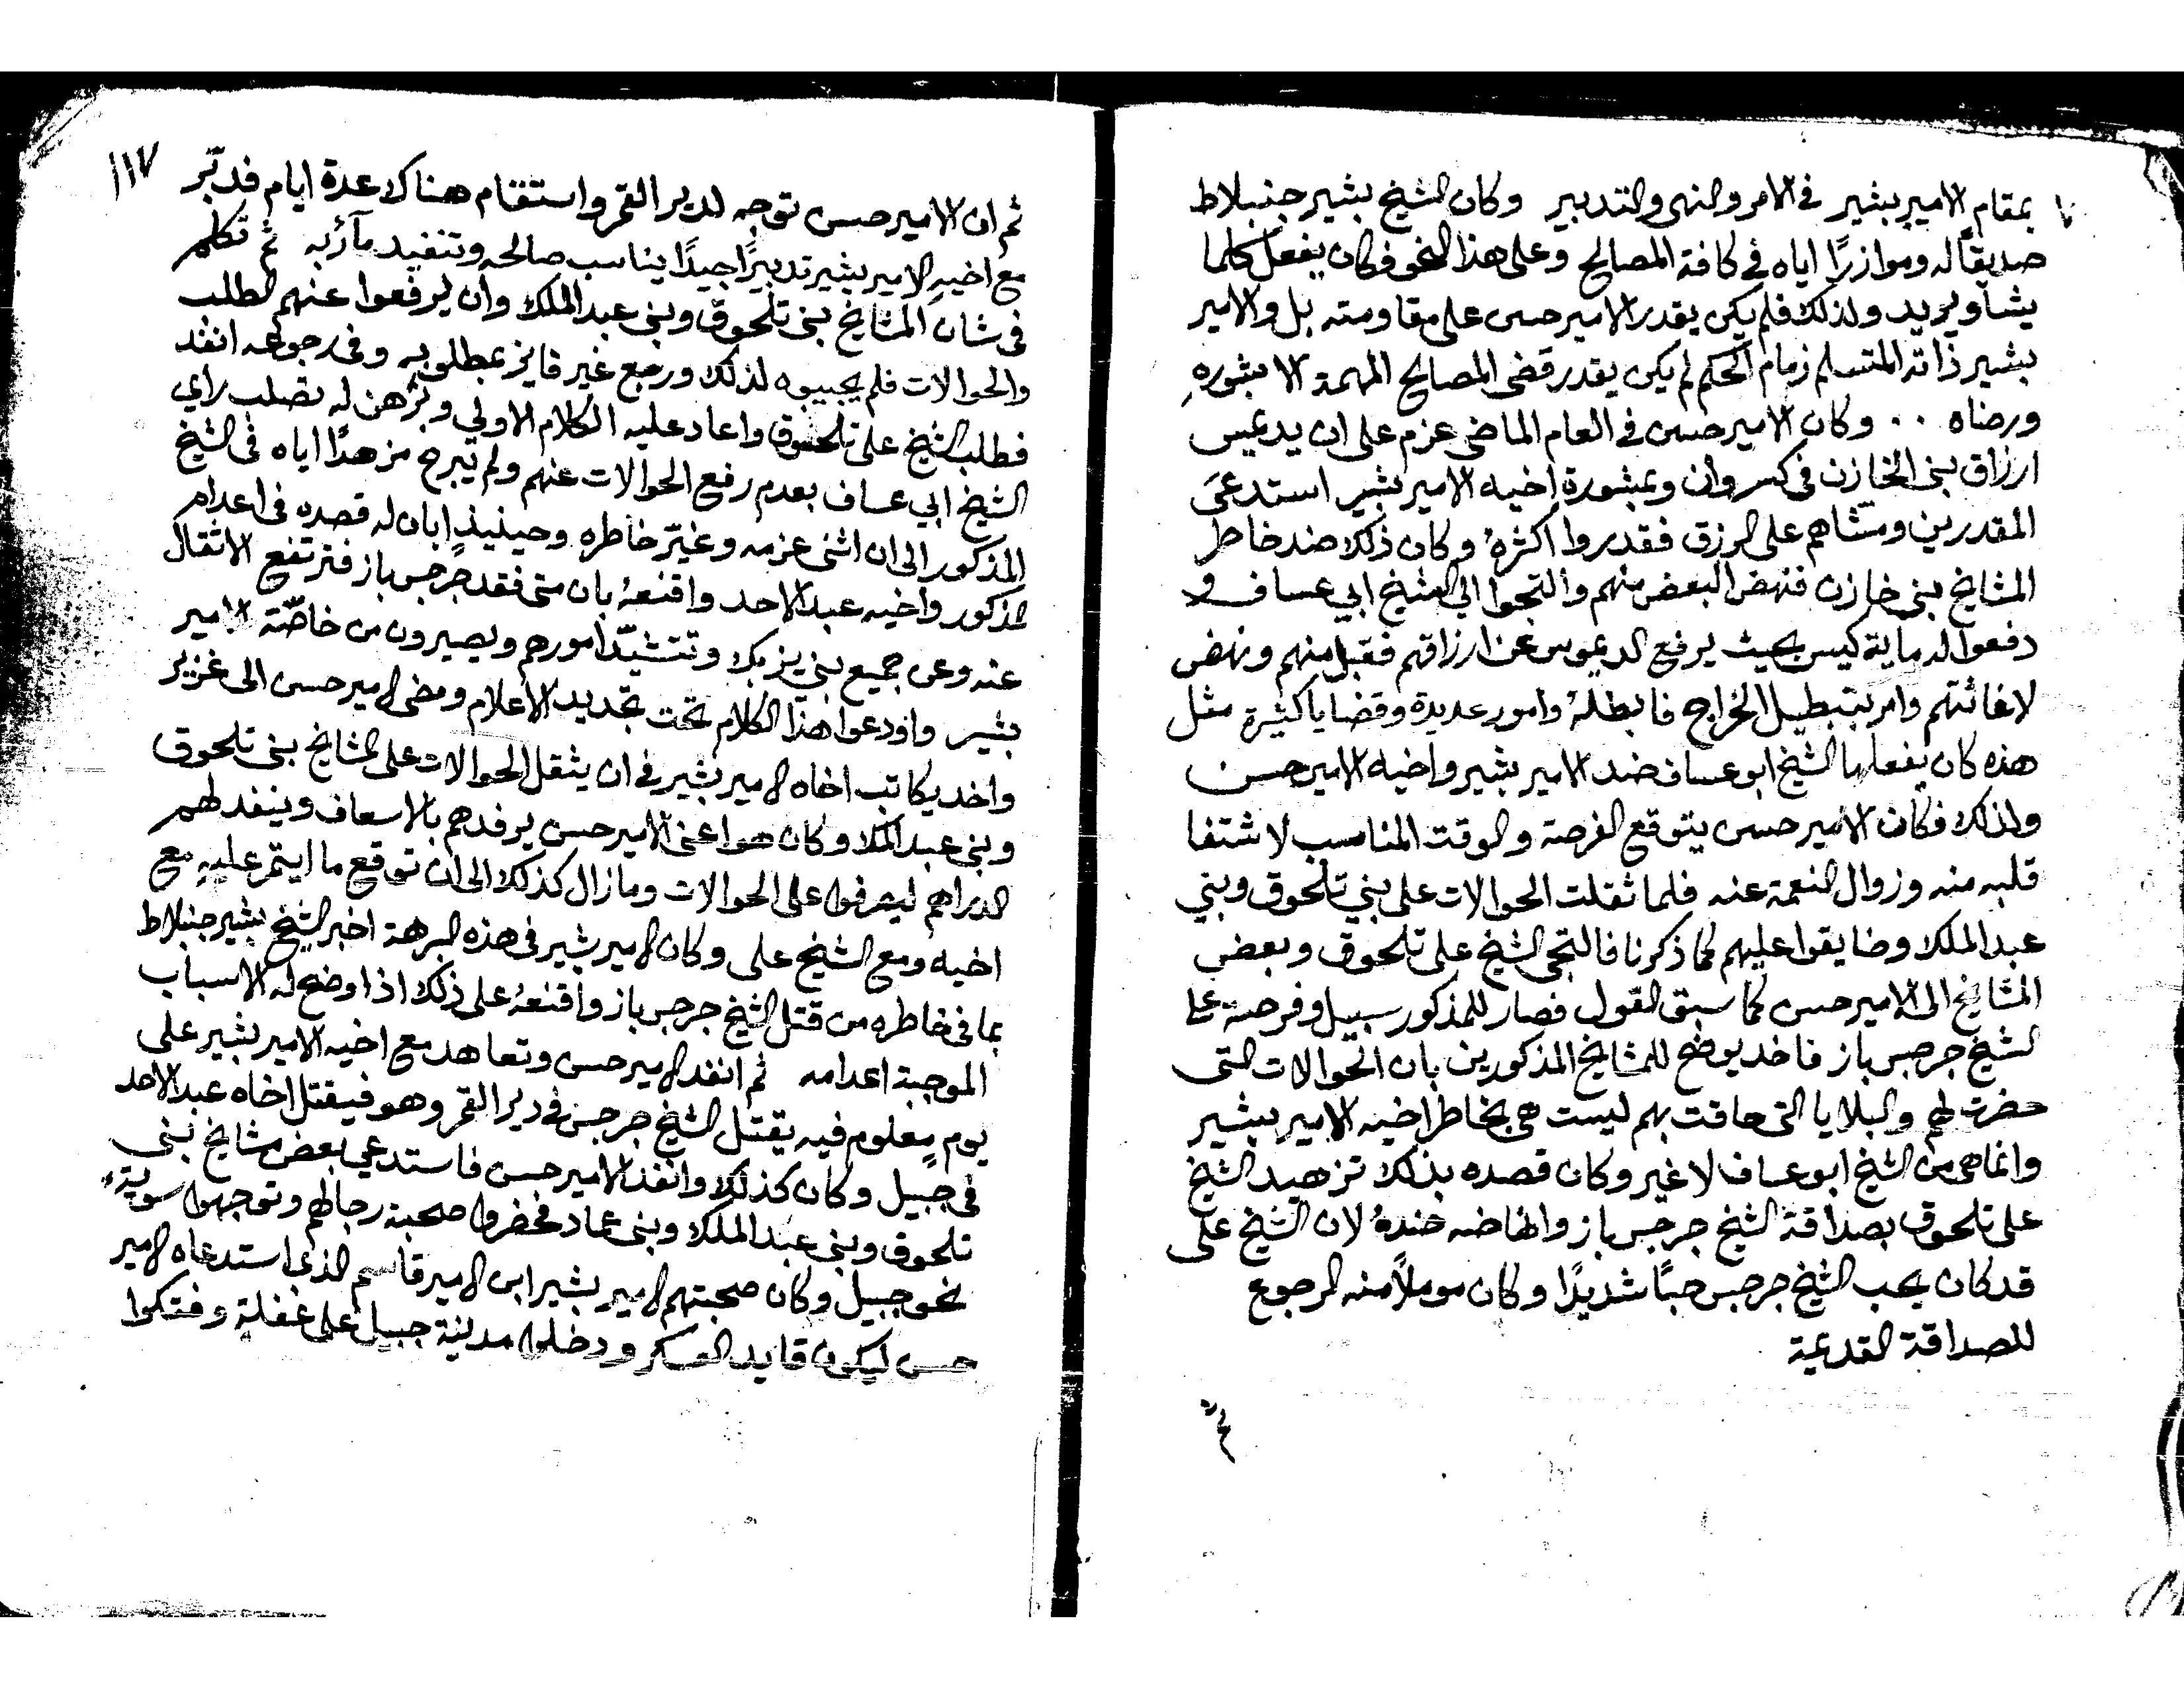 بمقام الامير بشير في الامر والنهى والتدبير وكان الشيخ بشير جنبلاط
صديقًا له وموازرًا اياه في كافة المصالح وعلى هذا النحو فكان يفعل كلما
يشا ويريد ولذلك فلم يكن يقدر الامير حسن على مقاومته بل والامير
بشير ذاته المتسلم زمام الحكم لم يكن يقدر قضى المصالح المهمة الا بشوره
ورضاه .. وكان الامير حسن في العام الماضي عزم على ان يدعيس
ارزاق بنى الخازن في كسروان وبمشورة اخيه الامير بشير استدعىَ
المقدرين ومشّاهم على الرزق فقدروا اكثرهُ وكان ذلك ضد خاطر
المشايخ بنى خازن فنهض البعض منهم والتجوا الي الشيخ ابي عساف و
دفعوا له ماية كيس بحيث يرفع الدعوس عن ارزاقهم فقبل منهم ونهض
لاغاثتهم وامر بتبطيل الخراج فابطلهُ وامور عديدة وقضايا كثيرة مثل
هذه كان يفعلها الشيخ ابو عساف ضد الامير بشير واخيه الامير حسن
ولذلك فكان الامير حسن يتوقع الفرصة والوقت المناسب لاشتفا
قلبه منه وزوال النعمة عنه فلما ثقلت الحوالات على بني تلحوق وبني
عبد الملك وضايقوا عليهم كما ذكرنا فالتجى الشيخ على تلحوق وبعض
المشايخ الى الامير حسن كما سبق القول فصار للمذكور سبيل وفرصة على
الشيخ جرجس باز فاخد يوضح للمشايخ المذكورين بان الحوالات التى
حضرت لهم والبلايا التى حاقت بهم ليست هي بخاطر اخيه الامير بشير
وانما هي من الشيخ ابو عساف لا غير وكان قصده بذلك تزهيد الشيخ
على تلحوق بصداقة الشيخ جرجس باز وانهاضه ضدهُ لان الشيخ على
قد كان يحب الشيخ جرجس حبًا شديدًا وكان موملًا منه الرجوع
للصداقة القديمة
ثم
١١٧
ثم ان الامير حسن توجه لدير القمر واستقام هناك عدة ايام فدبّر
مع اخيه الامير بشير تدبيرًا جيدًا يناسب صالحه وتنفيد مآربه ثم تكلم
في شان المشايخ بنى تلحوق وبنى عبد الملك وان يرفعوا عنهم الطلب
والحوالات فلم يجيبوه لذلك ورجع غير فايز بمطلوبه وفي رجوعه انفد
فطلب الشيخ على تلحوق واعاد عليه الكلام الاولي وبرهن له تصلب راي
الشيخ ابي عساف بعدم رفع الحوالات عنهم ولم يبرح مزهدًا اياه في الشيخ
المذكور الى ان اثنى عزمه وغيّر خاطره وحينيذٍ ابان له قصده في اعدام
المذكور واخيه عبد الاحد واقنعهُ بان متى فقد جرجس باز فترتفع الاثقال
عنه وعن جميع بني يزبك وتتشيّد امورهم ويصيرون من خاصّة الامير
بشير واودعوا هذا الكلام تحت تجديد الاعلام ومضى الامير حسن الى غزير
واخد يكاتب اخاه الامير بشير في ان يثقل الحوالات على المشايخ بنى تلحوق
وبنى عبد الملك وكان هو اعنى الامير حسن يرفدهم بالاسعاف وينفد لهم
الدراهم ليصرفوا على الحوالات وما زال كذلك الى ان توقع ما ايتمر عليهِ مع
اخيه ومع الشيخ على وكان الامير بشير في هذه البرهة اخبر الشيخ بشير جنبلاط
بما في خاطره من قتل الشيخ جرجس باز واقنعهُ على ذلك اذ اوضح له الاسباب
الموجبة اعدامه ثم انفد الامير حسن وتعاهد مع اخيه الامير بشير على
يومٍ معلوم فيه يقتل الشيخ جرجس في دير القمر وهو فيقتل اخاه عبد الاحد
في جبيل وكان كذلك وانفذ الامير حسن فاستدعي بعض مشايخ بنى
تلحوق وبنى عبد الملك وبنى عماد فحضروا صحبة رجالهم وتوجهوا سويةً
نحو جبيل وكان صحبتهم الامير بشير ابن الامير قاسم الذى استدعاه الامير
حسن ليكون قايد العسكر ودخلوا مدينة جبيل على غفلة وفتكوا